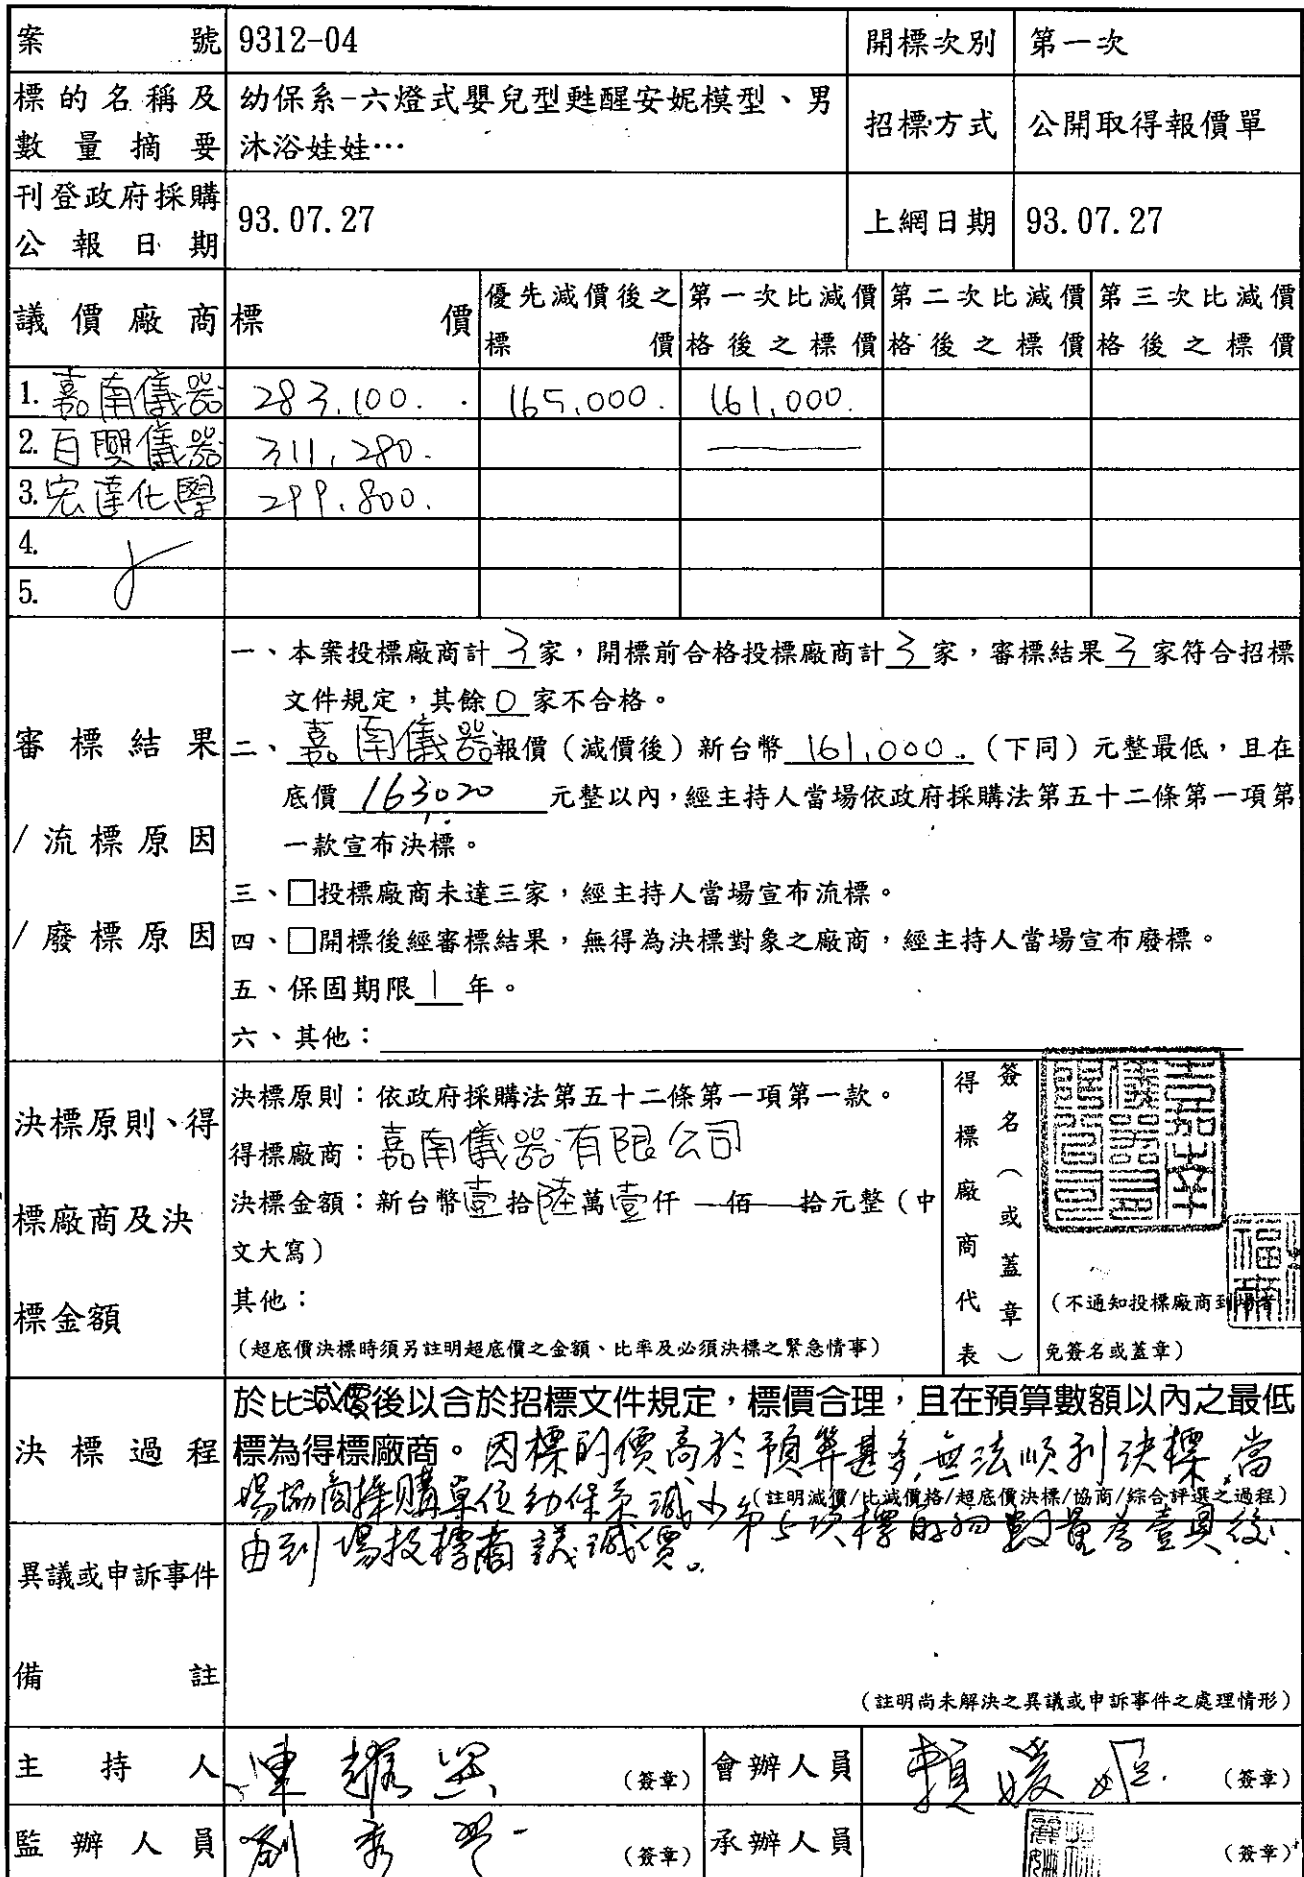 案號 9312-04 開標次別 第一次
標的名稱及數量摘要 幼保系-六燈式嬰兒型甦醒安妮模型、男
沐浴娃娃… 招標方式 公開取得報價單
刊登政府採購公報日期 93.07.27 上網日期 93.07.27
議價廠商 標價 優先減價後之標價 第一次比減價格後之標價 第二次比減價格後之標價 第三次比減價格後之標價
1. 嘉南儀器 283,100. 165,000. 161,000.
2. 百興儀器 311,280.
3. 宏達化學 299,800.
4.
5.
審標結果/流標原因/廢標原因
一、本案投標廠商計3家，開標前合格投標廠商計3家，審標結果3家符合招標
文件規定，其餘0家不合格。
二、嘉南儀器報價（減價後）新台幣161,000.（下同）元整最低，且在
底價163020元整以內，經主持人當場依政府採購法第五十二條第一項第
一款宣布決標。
三、□投標廠商未達三家，經主持人當場宣布流標。
四、□開標後經審標結果，無得為決標對象之廠商，經主持人當場宣布廢標。
五、保固期限1年。
六、其他：
決標原則、得標廠商及決標金額
決標原則：依政府採購法第五十二條第一項第一款。
得標廠商：嘉南儀器有限公司
決標金額：新台幣壹拾陸萬壹仟 佰 拾元整（中
文大寫）
其他：
（超底價決標時須另註明超底價之金額、比率及必須決標之緊急情事）
得標廠商代表
簽名（或蓋章）
（不通知投標廠商到場者
免簽名或蓋章）
決標過程
於比減價後以合於招標文件規定，標價合理，且在預算數額以內之最低
標為得標廠商。因標的價高於預算甚多，無法順利決標，當
場協商採購單位幼保系減少第5項標的物數量為壹具後
（註明減價/比減價格/超底價決標/協商/綜合評選之過程）
由到場投標商議減價。
異議或申訴事件
備註
（註明尚未解決之異議或申訴事件之處理情形）
主持人 （簽章） 會辦人員 （簽章）
監辦人員 （簽章） 承辦人員 （簽章）